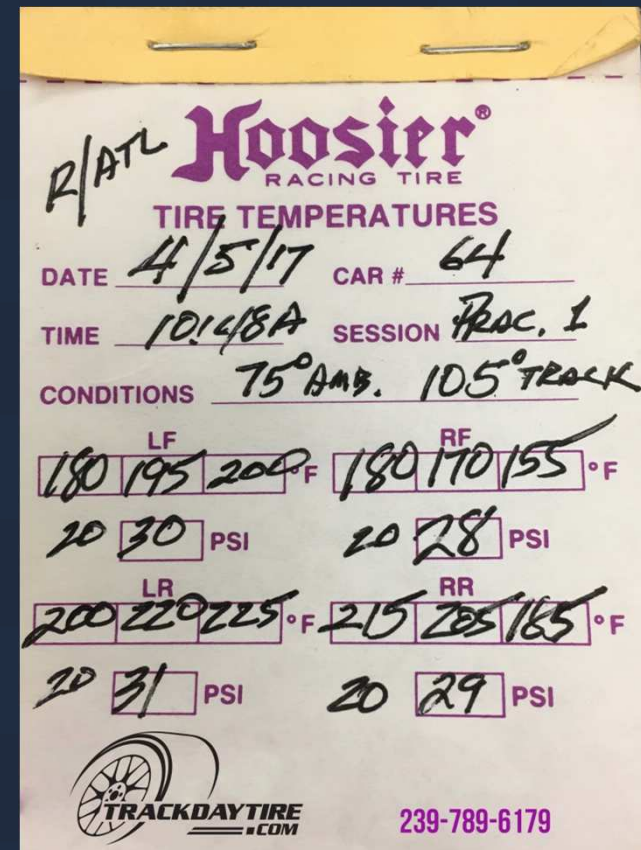 R/ATL
Hoosier®
RACING TIRE
TIRE TEMPERATURES
DATE 4/5/17 CAR # 64
TIME 10:48A SESSION PRAC. 1
CONDITIONS 75° AMB. 105° TRACK
LF RF
180 195 200 °F 180 170 155 °F
20 30 PSI 20 28 PSI
LR RR
200 220 225 °F 215 205 165 °F
20 31 PSI 20 29 PSI
TRACKDAYTIRE
.COM
239-789-6179